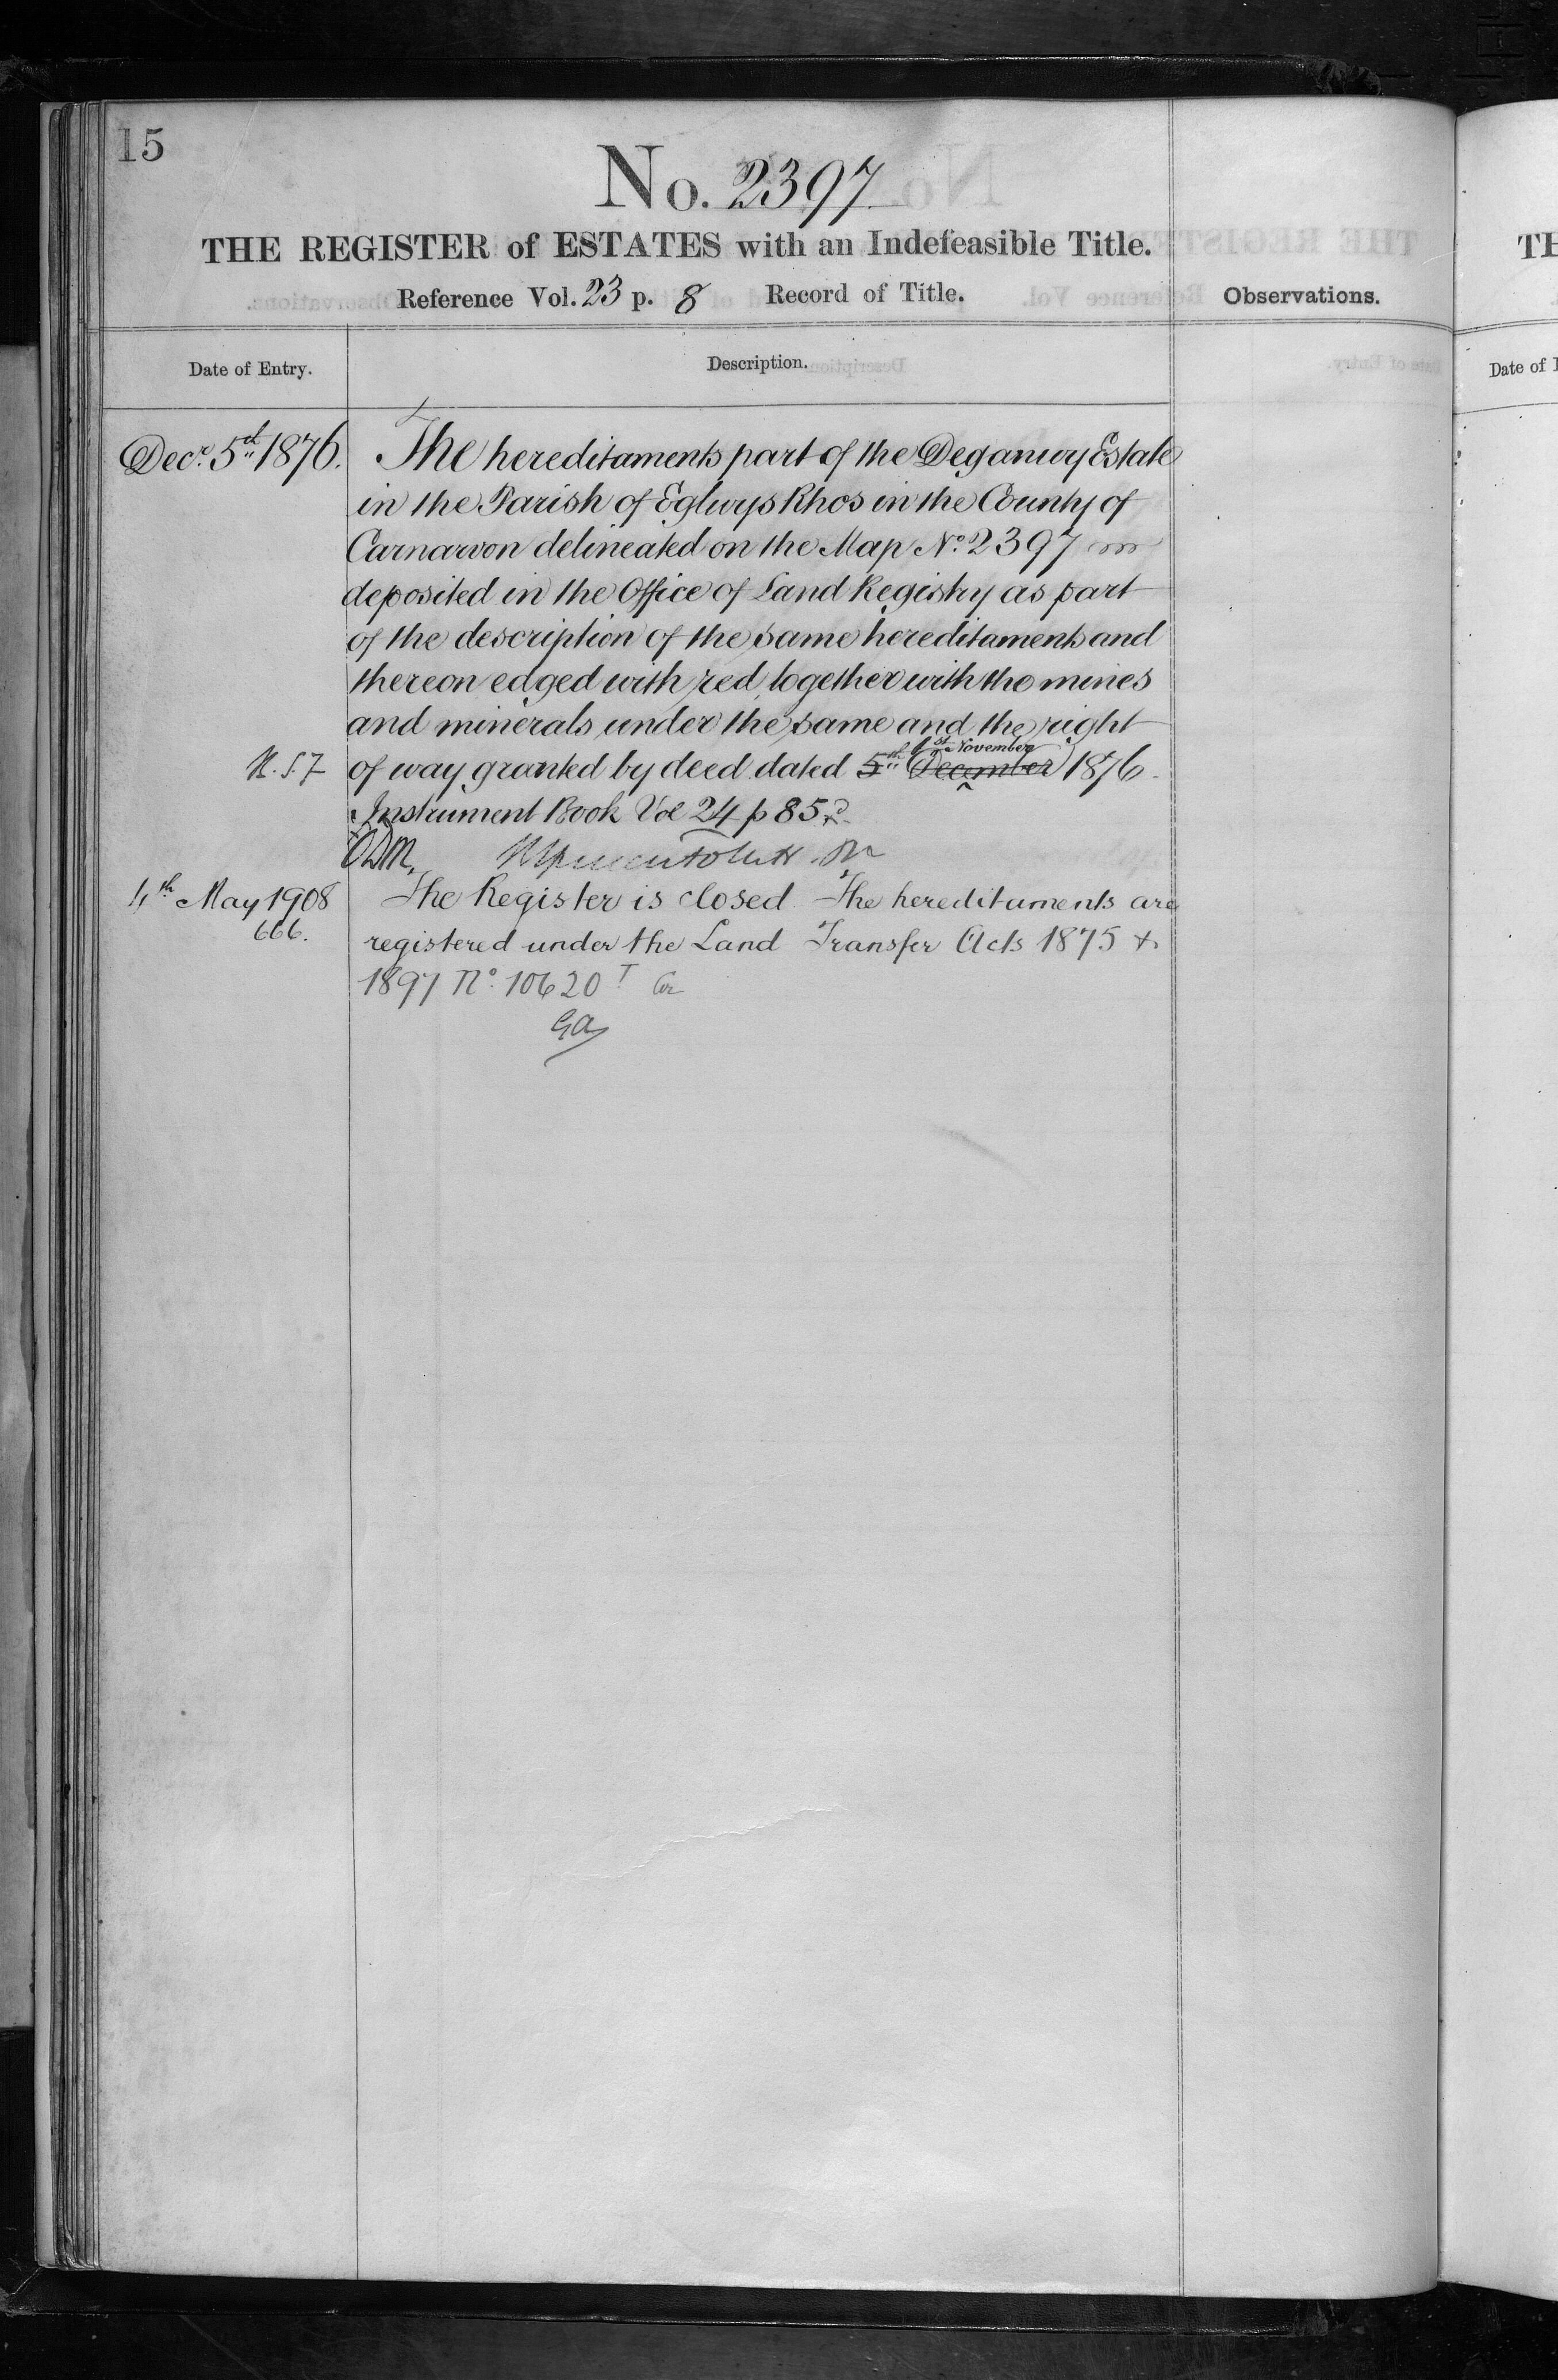 15
No. 2397
THE REGISTER of ESTATES with an Indefeasible Title.
Reference Vol. 23 p. 8 Record of Title.
Observations.
Date of Entry.
Description.
Decr. 5th 1876.
The hereditaments part of the Deganwy Estate
in the Parish of Eglwys Rhos in the County of
Carnarvon delineated on the Map No. 2397
deposited in the Office of Land Registry as part
of the description of the same hereditaments and
thereon edged with red, together with the mines
and minerals under the same and the right
1st November
of way granted by deed dated 5th December 1876.
Instrument Book Vol 24 p 85
4th May 1908
666.
The Register is closed The hereditaments are
registered under the Land Transfer Acts 1875 &
1897 No. 10620
GA
TH
Date of